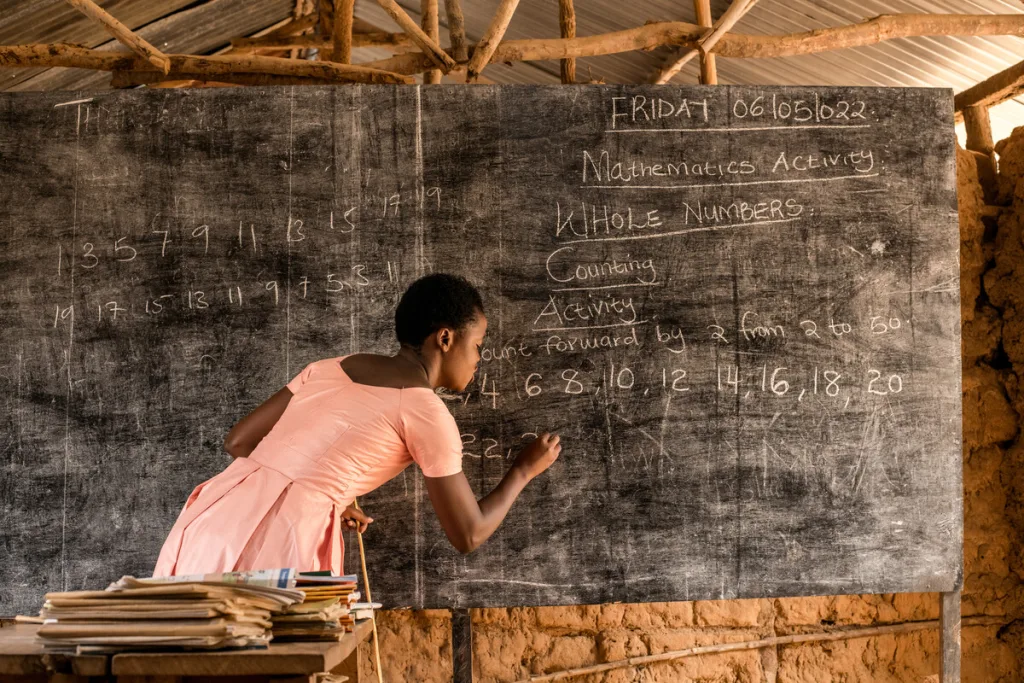 1 3 5 7 9 11 13 15 17 19
19 17 15 13 11 9 7 5 3 11
FRIDAY 06/05/022.
Mathematics Activity.
WHOLE NUMBERS.
Counting
Activity
ount forward by 2 from 2 to 50.
, 4, 6, 8, 10, 12 14, 16, 18, 20
22, 2